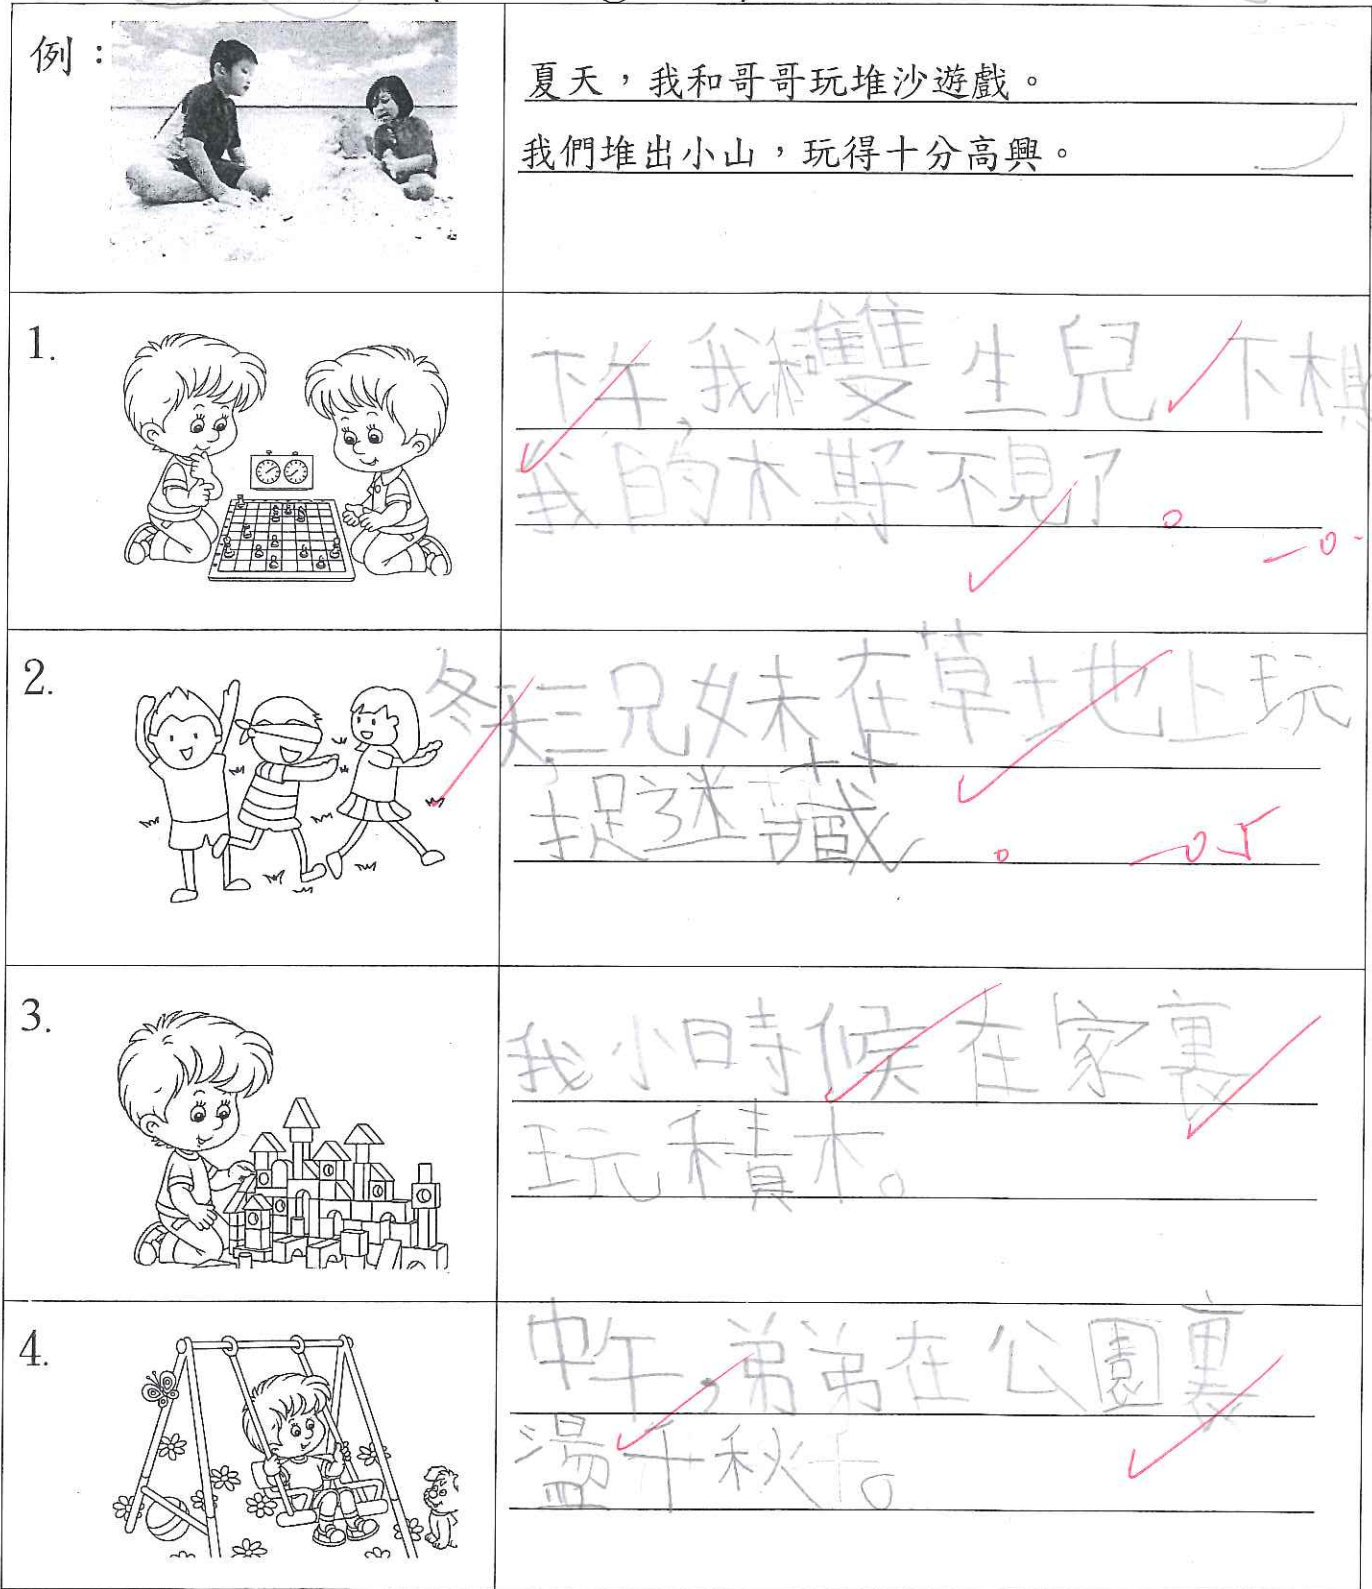 例：
夏天，我和哥哥玩堆沙遊戲。
我們堆出小山，玩得十分高興。
1.
下午，我和雙生兒下棋
我的木斯不見了。
2.
冬天，三兄妹在草地上玩
捉迷藏。
3.
我小時候在家裏
玩積木。
4.
中午，弟弟在公園裏
盪千秋千。